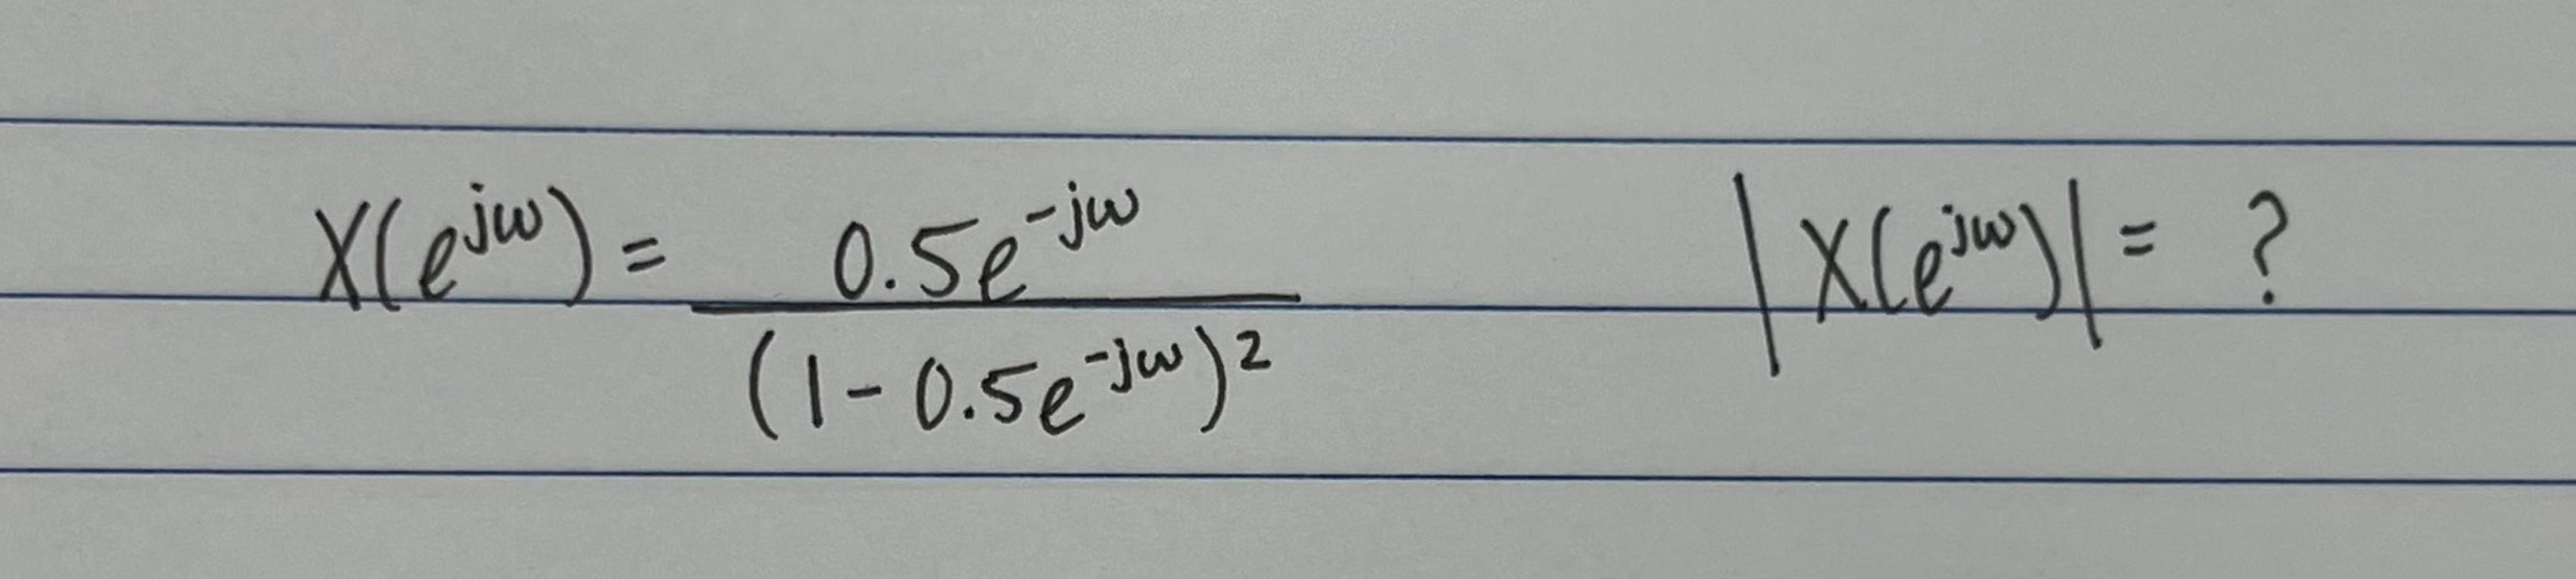 X(e^{jω}) = \frac{0.5e^{-jω}}{(1 - 0.5e^{-jω})^2} |X(e^{jω})| = ?